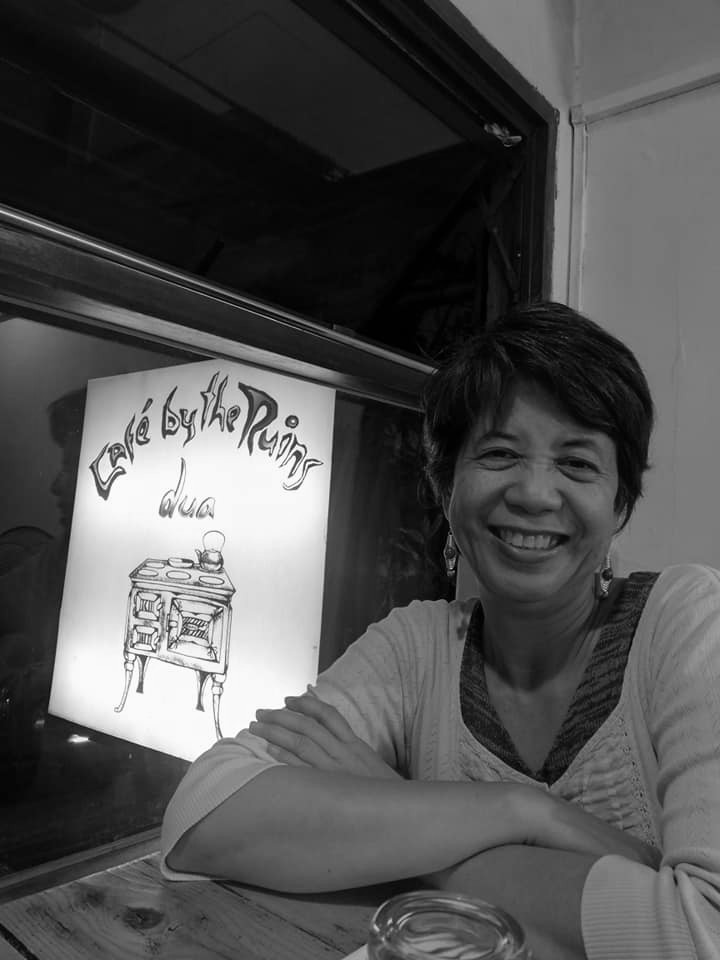 Café by the Ruins
dua